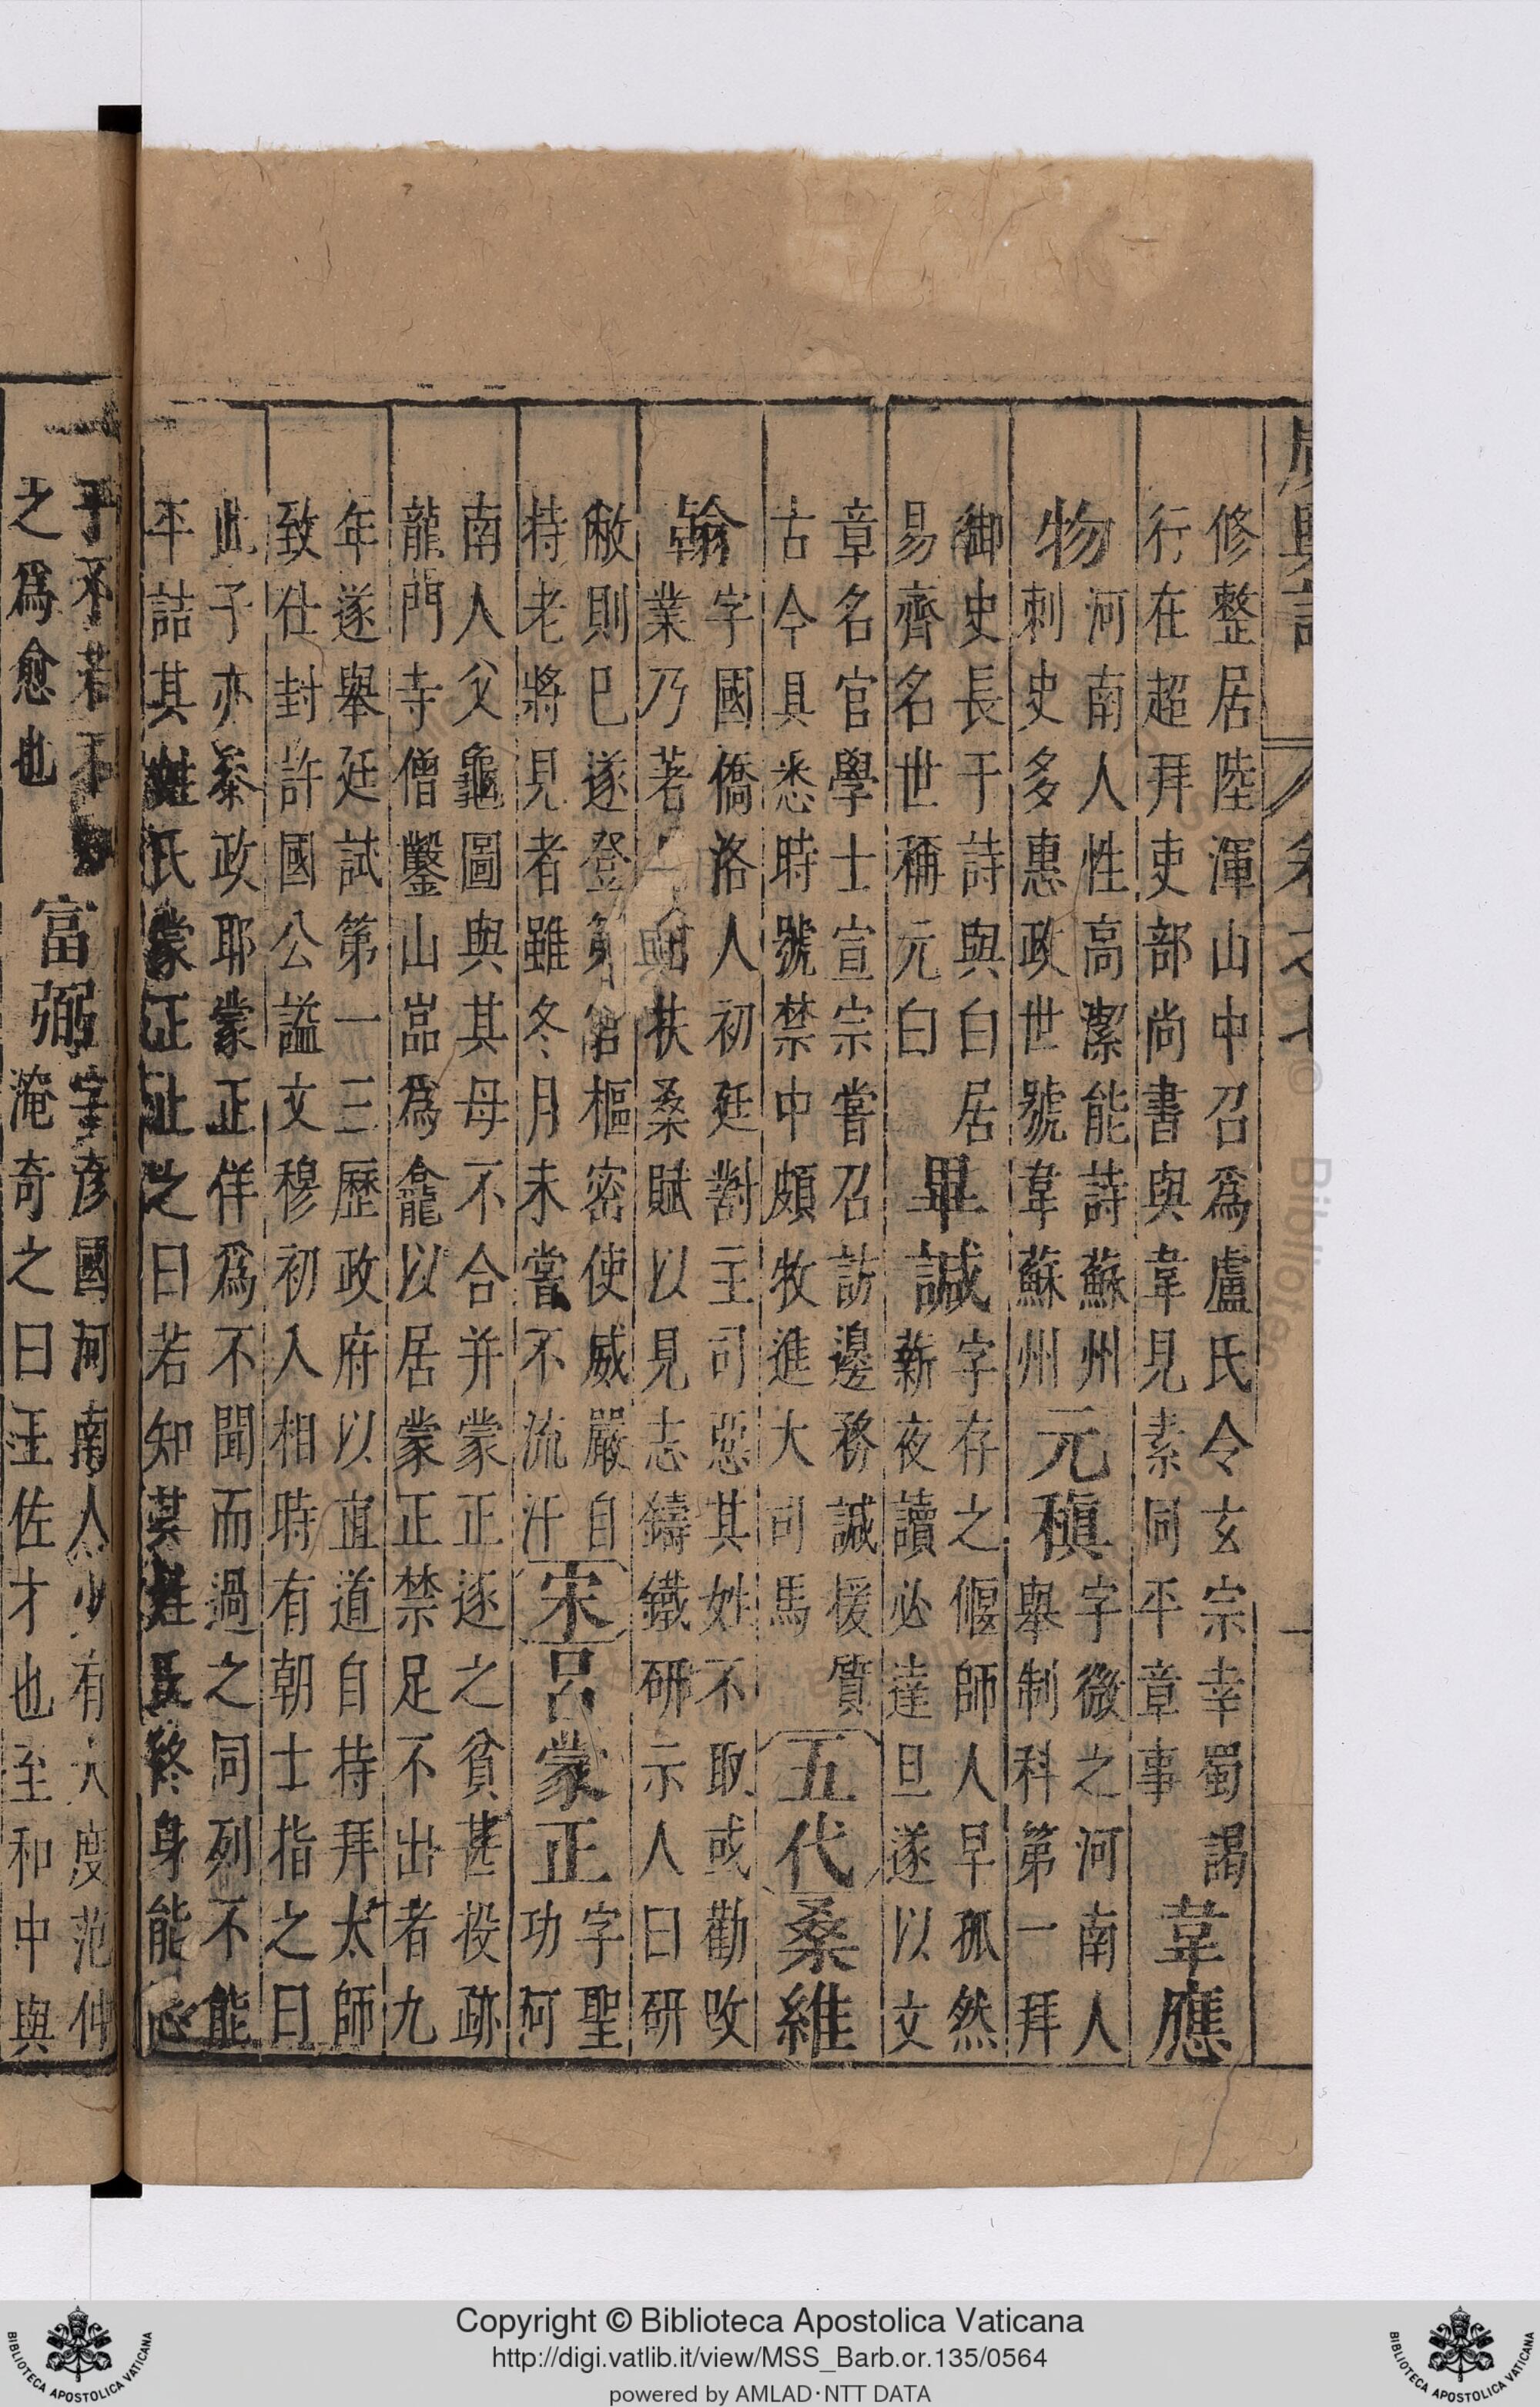 廣輿記 卷之七
修整居陸渾山中召爲盧氏令玄宗幸蜀謁
行在超拜吏部尚書與韋見素同平章事
韋應
物
河南人性高潔能詩蘇州
刺史多惠政世號韋蘇州
元稹
字微之河南人
舉制科第一拜
御史長于詩與白居
易齊名世稱元白
畢諴
字存之偃師人早孤然
薪夜讀必達旦遂以文
章名官學士宣宗嘗召訪邊務諴援質
古今具悉時號禁中頗牧進大司馬
五代
桑維
翰
字國僑洛人初廷對主司惡其姓不取或勸改
業乃著日出扶桑賦以見志鑄鐵研示人曰研
敝則已遂登第官樞密使威嚴自
特老將見者雖冬月未嘗不流汗
宋
呂蒙正
字聖功河
南人父龜圖與其母不合并蒙正逐之貧甚投跡
龍門寺僧鑿山嵓爲龕以居蒙正禁足不出者九
年遂舉廷試第一三歷政府以直道自持拜太師
致仕封許國公謚文穆初入相時有朝士指之曰
此子亦叅政耶蒙正佯爲不聞而過之同列不能
平詰其姓氏蒙正止之曰若知其姓氏終身能忘
乎不若不
之爲愈也
富弼
字彥國河南人少有大度范仲
淹奇之曰王佐才也至和中與
Copyright © Biblioteca Apostolica Vaticana
http://digi.vatlib.it/view/MSS_Barb.or.135/0564
powered by AMLAD·NTT DATA
BIBLIOTECA APOSTOLICA VATICANA
BIBLIOTECA APOSTOLICA VATICANA